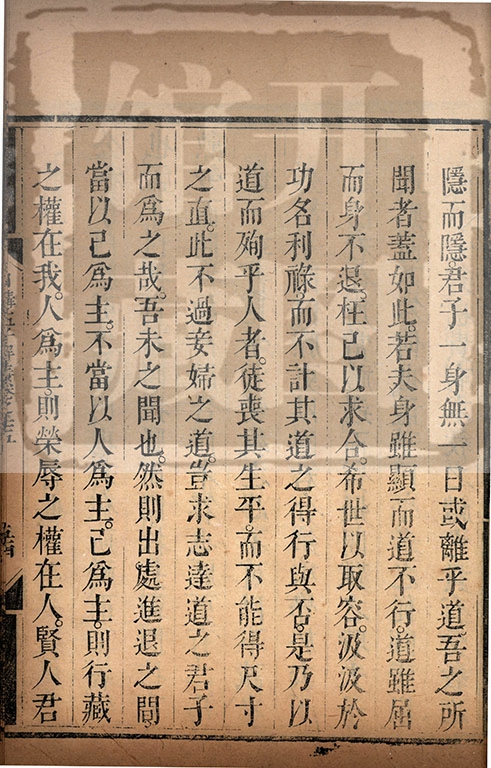 隱而隱君子一身無一日或離乎道吾之所
聞者蓋如此若夫身雖顯而道不行道雖屈
而身不退枉己以求合希世以取容汲汲於
功名利祿而不計其道之得行與否是乃以
道而殉乎人者徒喪其生平而不能得尺寸
之直此不過妾婦之道豈求志達道之君子
而爲之哉吾未之聞也然則出處進退之間
當以己爲主不當以人爲主己爲主則行藏
之權在我人爲主則榮辱之權在人賢人君